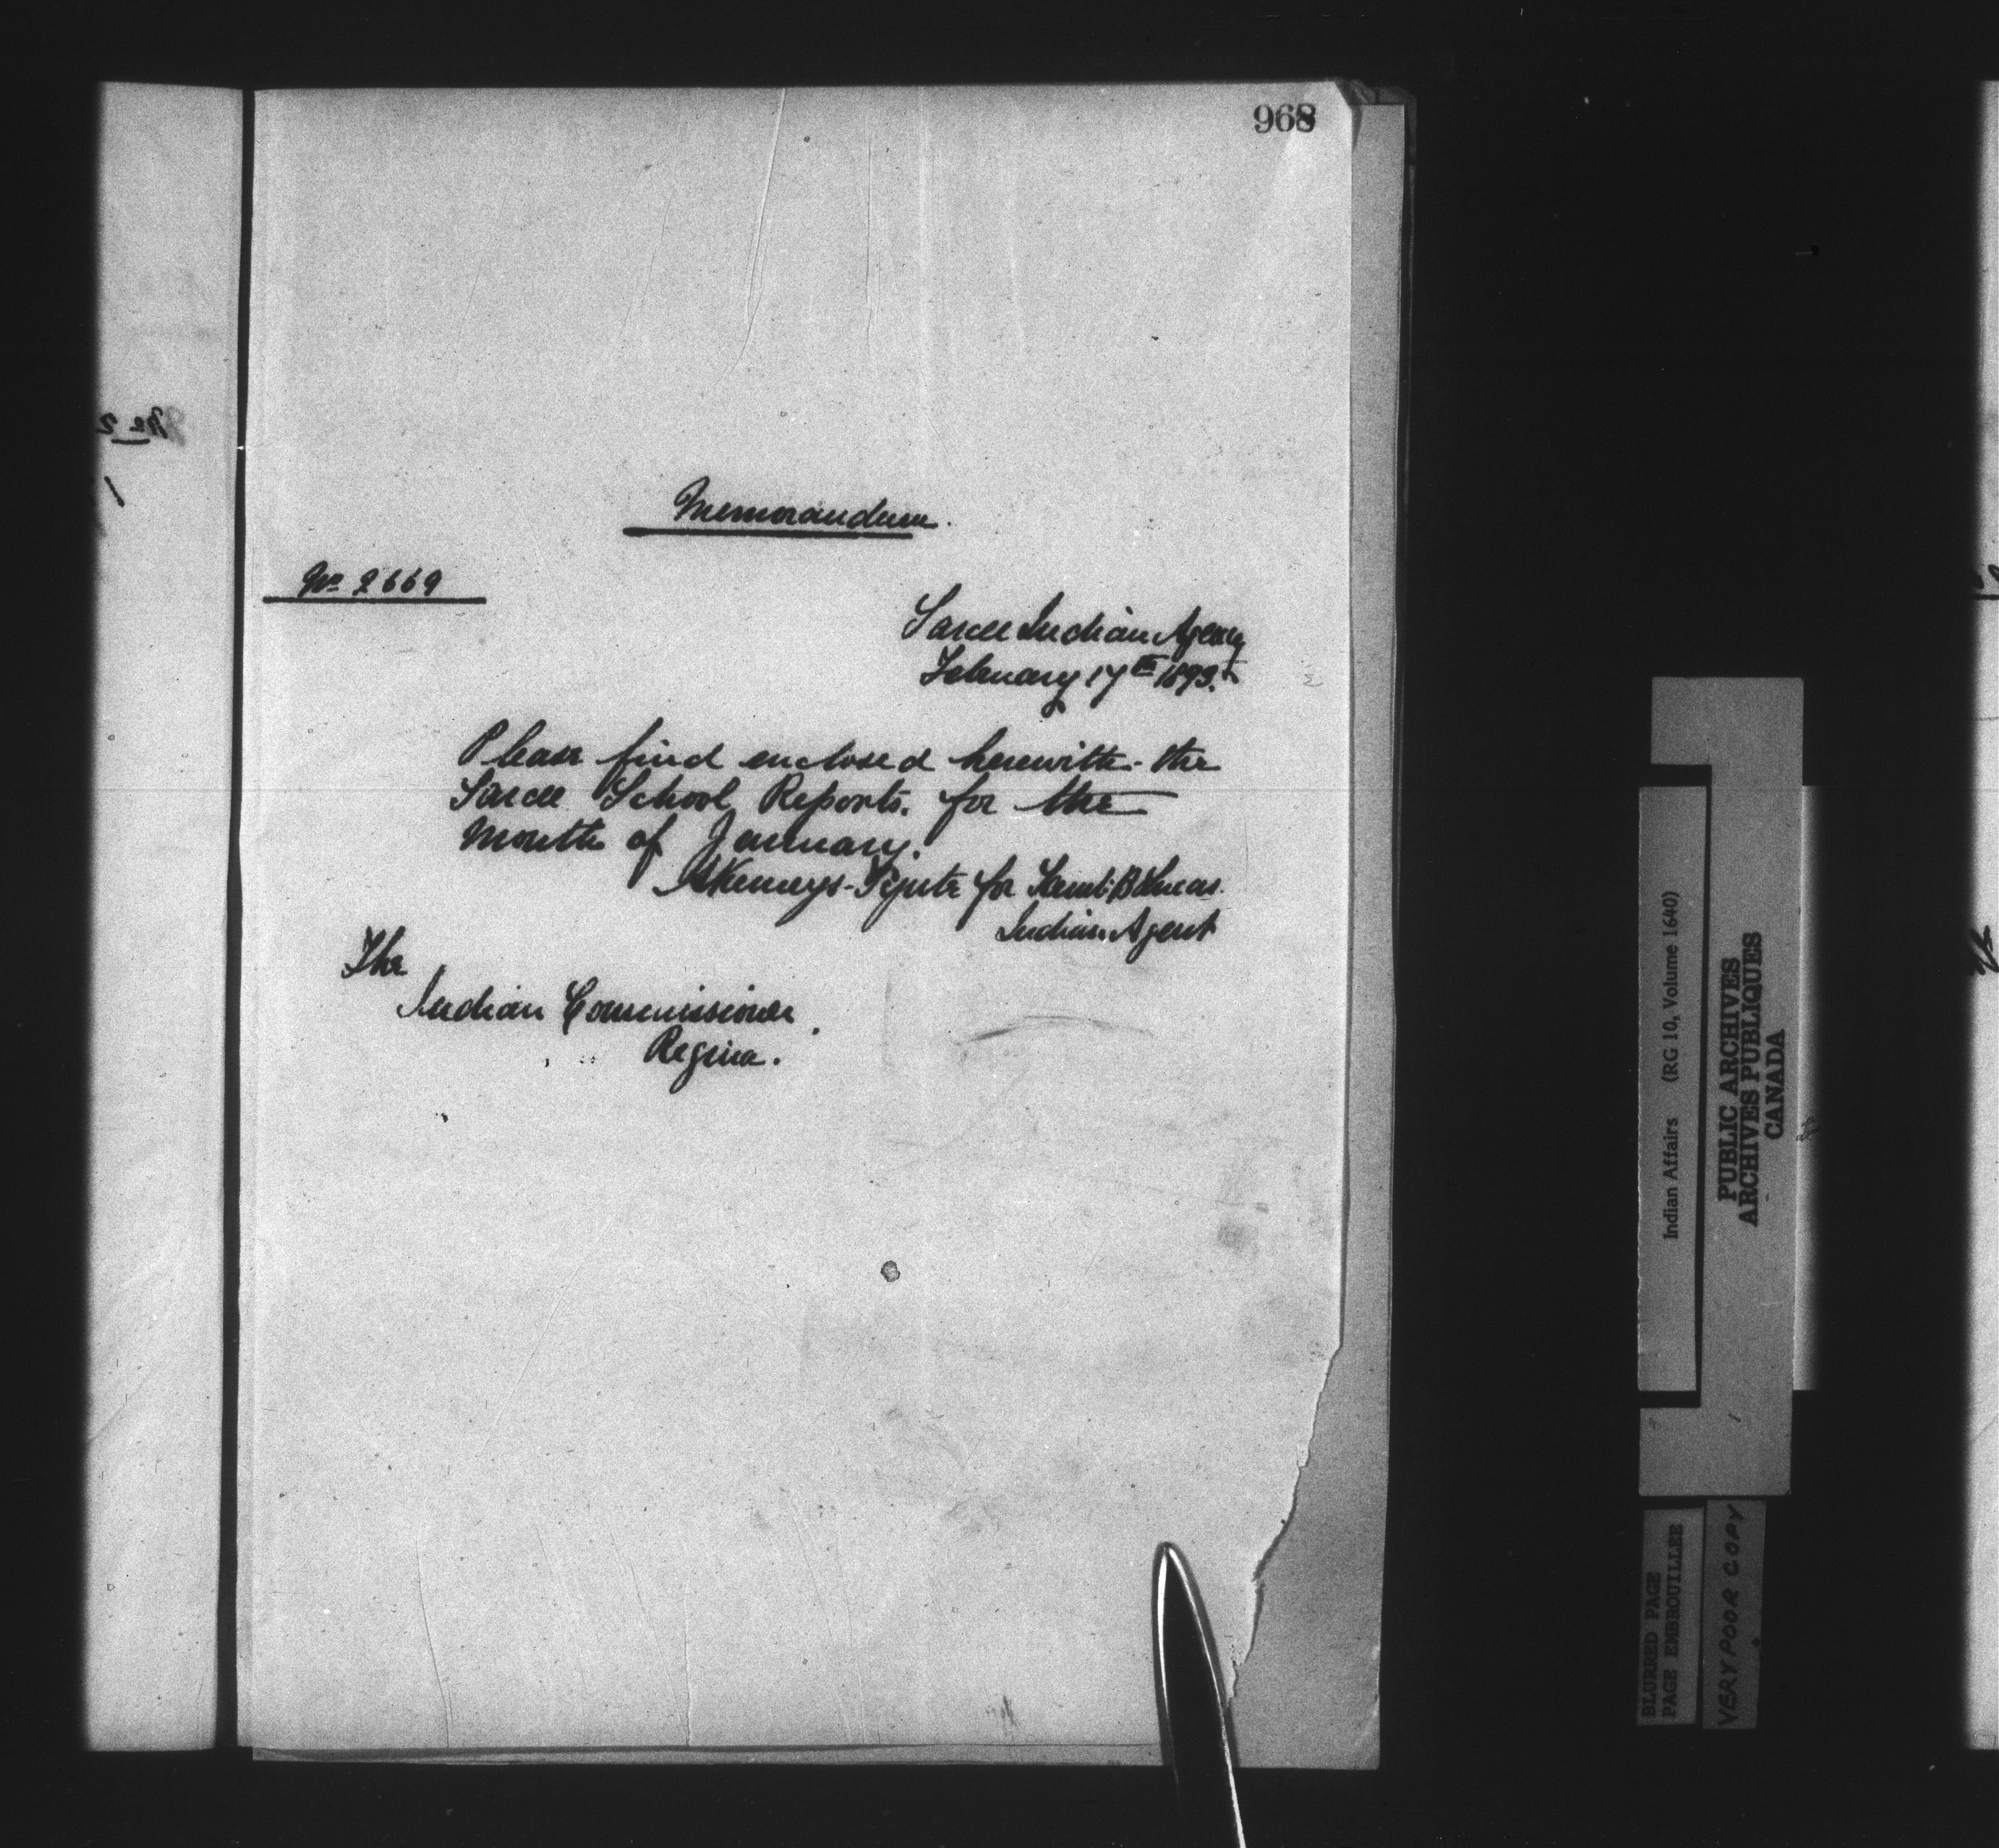 968
Memorandum.
No 2669
Sarcee Indian Agency
February 17th 1893.
Please find enclosed herewith the
Sarcee School Reports. for the
Month of January.
Kemeys-Tynte for Saml. B Lucas
Indian Agent
The
Indian Commissioner
Regina.
Indian Affairs (RG 10, Volume 1640)
PUBLIC ARCHIVES
ARCHIVES PUBLIQUES
CANADA
BLURRED PAGE
PAGE EMBROUILLEE
VERY POOR COPY